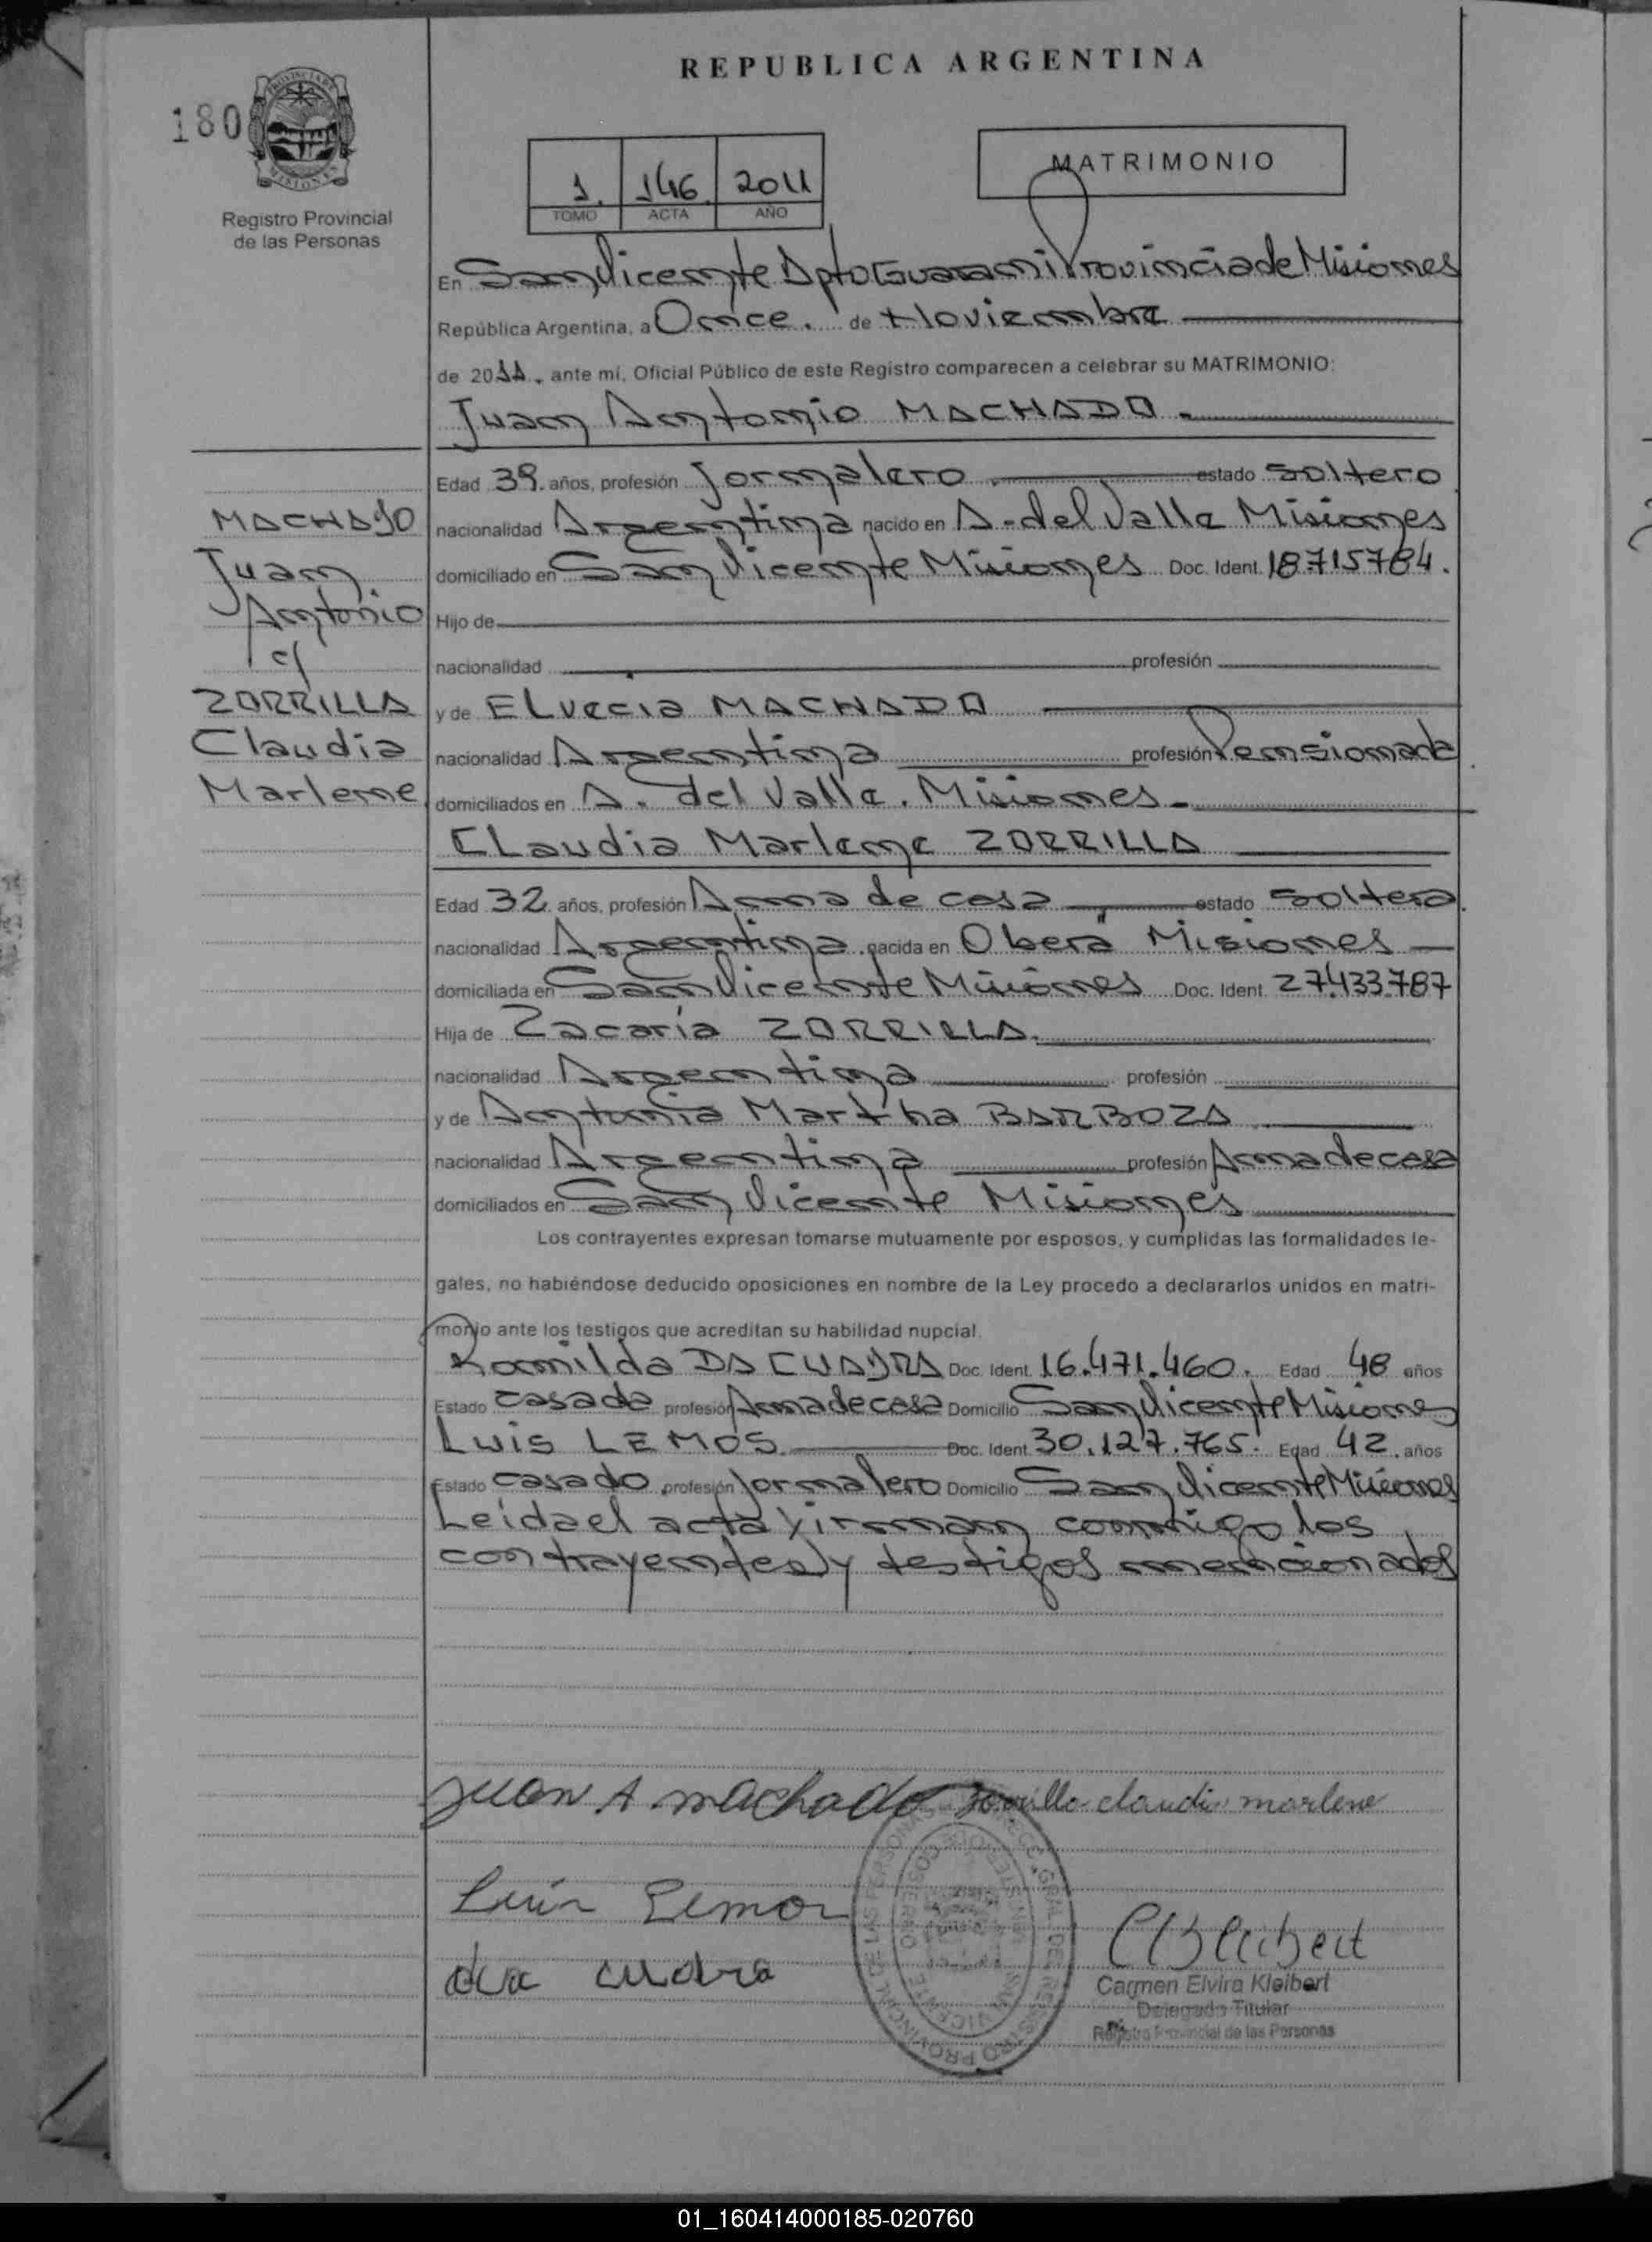 REPUBLICA ARGENTINA
180
PROVINCIA DE
MISIONES
Registro Provincial
de las Personas
1. 146 2011
TOMO ACTA AÑO
MATRIMONIO
En San Vicente Dpto Guarani Provincia de Misiones
República Argentina, a Once. de Noviembre
de 2011, ante mí, Oficial Público de este Registro comparecen a celebrar su MATRIMONIO:
Juan Antonio MACHADO.
Edad 39. años, profesión Jornalero estado soltero
nacionalidad Argentina nacido en A. del Valle Misiones
domiciliado en San Vicente Misiones Doc. Ident. 18715784.
Hijo de
nacionalidad profesión
y de ELvecia MACHADO
nacionalidad Argentina profesión Pensionada
domiciliados en A. del Valle. Misiones.
MACHADO
Juan
Antonio
c/
ZORRILLA
Claudia
Marlene
CLaudia Marlene ZORRILLA
Edad 32. años, profesión Ama de casa estado soltera.
nacionalidad Argentina nacida en Obera Misiones
domiciliada en San Vicente Misiones Doc. Ident. 27.433.787
Hija de Zacaría ZORRILLA.
nacionalidad Argentina profesión
y de Antonia Martha BARBOZA
nacionalidad Argentina profesión Ama de casa
domiciliados en San Vicente Misiones
Los contrayentes expresan tomarse mutuamente por esposos, y cumplidas las formalidades le-
gales, no habiéndose deducido oposiciones en nombre de la Ley procedo a declararlos unidos en matri-
monio ante los testigos que acreditan su habilidad nupcial.
Romilda DA CUADRA Doc. Ident. 16.471.460. Edad 48 años
Estado casada profesión Ama de casa Domicilio San Vicente Misiones
Luis LEMOS. Doc. Ident. 30.127.765. Edad 42. años
Estado casado profesión Jornalero Domicilio San Vicente Misiones
Leida el acta firman conmigo los
contrayentes y testigos mencionados
Juan A machado Zorrilla claudia marlene
Luis Lemos
da cudra
Carmen Elvira Kleibert
Delegada Titular
Registro Provincial de las Personas
01_160414000185-020760